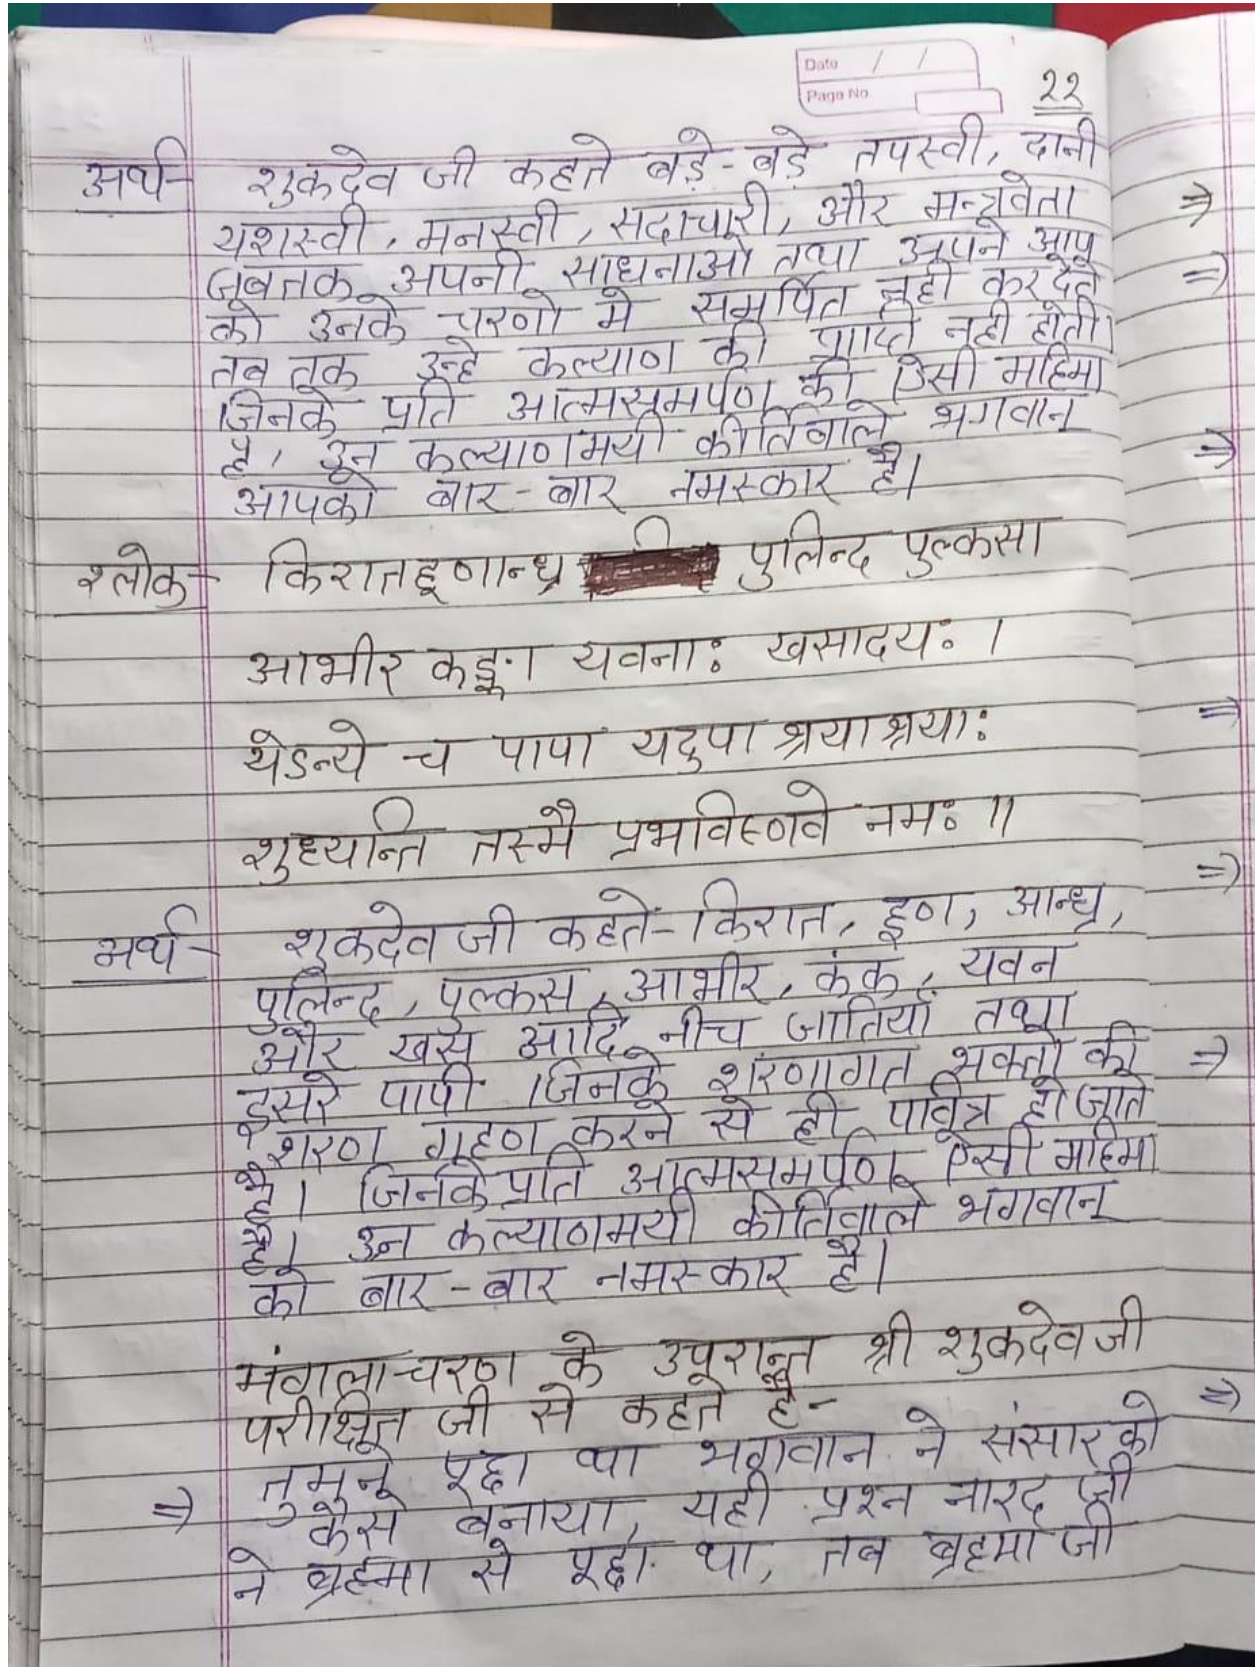 Date / /
Page No.
२२
अर्थ- शुकदेव जी कहते बड़े-बड़े तपस्वी, दानी
यशस्वी, मनस्वी, सदाचारी, और मन्त्रवेता
जबतक अपनी साधनाओ तथा अपने आप
को उनके चरणो मे समर्पित नही कर देते
तब तक उन्हे कल्याण की प्राप्ति नही होती।
जिनके प्रति आत्मसमर्पण की ऐसी महिमा
है, उन कल्याणमयी कीर्तिवाले भगवान्
आपको बार-बार नमस्कार है।
श्लोक- किरातहूणान्ध्र पुलिन्द पुल्कसा
आभीर कङ्का यवनाः खसादयः।
येऽन्ये च पापा यदुपा श्रयाश्रयाः
शुध्यन्ति तस्मै प्रभविष्णवे नमः॥
अर्थ- शुकदेव जी कहते- किरात, हूण, आन्ध्र,
पुलिन्द, पुल्कस, आभीर, कंक, यवन
और खस आदि नीच जातियाँ तथा
दूसरे पापी जिनके शरणागत भक्तो की
शरण ग्रहण करने से ही पवित्र हो जाते
है। जिनके प्रति आत्मसमर्पण ऐसी महिमा
है। उन कल्याणमयी कीर्तिवाले भगवान्
को बार-बार नमस्कार है।
मंगलाचरण के उपरान्त श्री शुकदेव जी
परीक्षित जी से कहते है-
तुमने पूछा था भगवान ने संसार को
⇒ कैसे बनाया, यही प्रश्न नारद जी
ने ब्रहमा से पूछा था, तब ब्रहमा जी